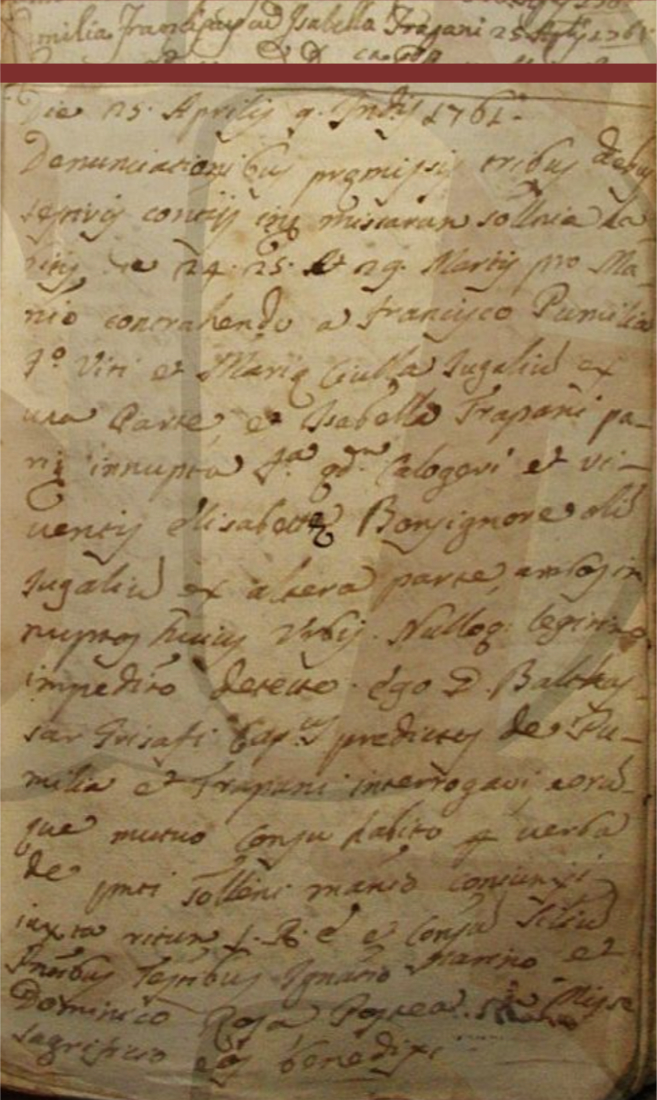 milia Franciscus cum Isabella Trapani 25 Aprilis 1761
Die 25. Aprilis 9. Inds 1761.
Denunciationibus premissis tribus diebus
festivis
die 24. 25. et 29. Martij pro Ma-
nio contrahendo a Francisco Pumilia
fo Viri et Maria Ciulla Jugaliu ex
una Parte et Isabella Trapani pa-
ris innupta fa qdm Calogeri et vi-
ventis Elisabette Bonsignore oli
Jugaliu ex altera parte, ambos in
nuptos huius Urbis. Nulloq legitimo
impedito detecto. Ego D. Baltas-
sar Grisafi Capus predictos de Pu-
milia et Trapani interrogavi eoru-
que mutuo consu habito p verba
de pnti sollenr manio coniunxi
iuxta ritum S. R. E. et
pntibus testibus Ignatio Marino et
Dominico Rosa Postea Misse
sagrificio eos benedixi